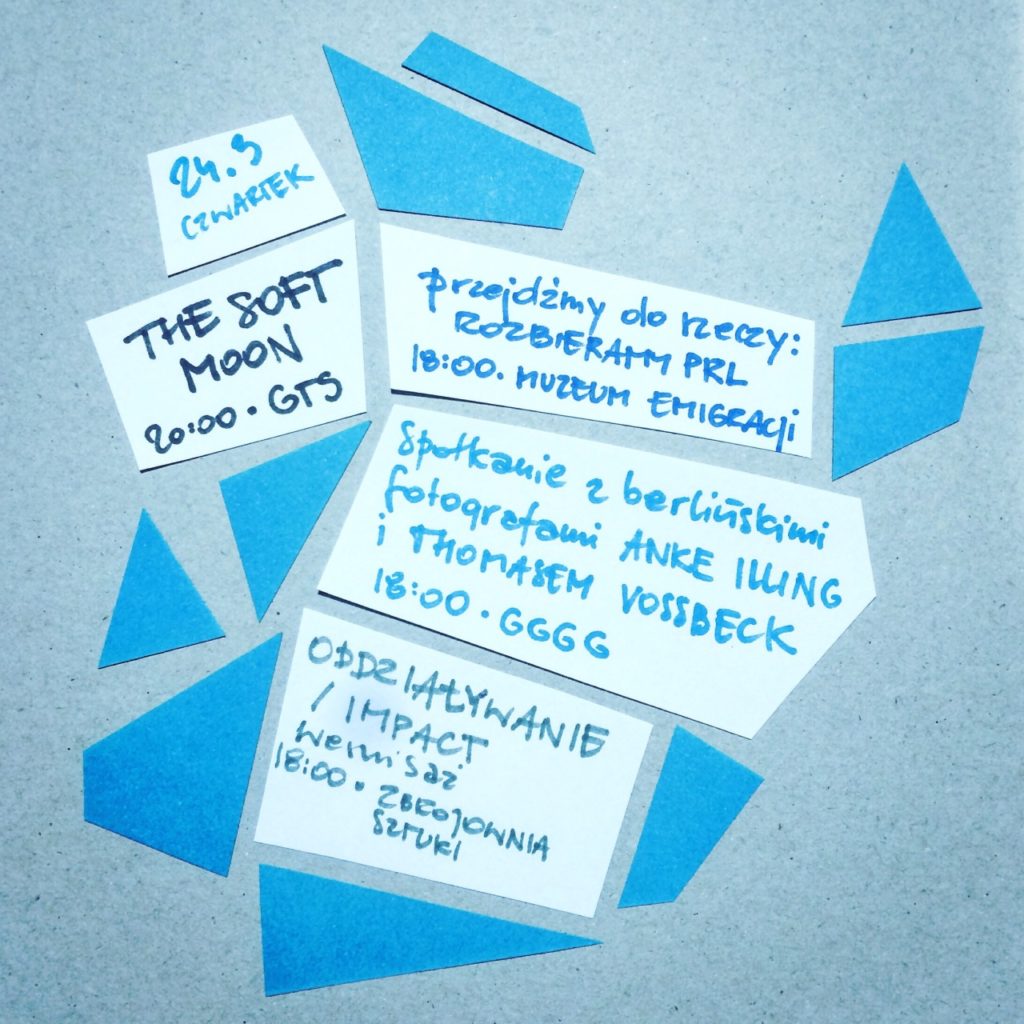 24.3
CZWARTEK
THE SOFT
MOON
20:00 · GTS
przejdźmy do rzeczy:
ROZBIERAMY PRL
18:00. MUZEUM EMIGRACJI
Spotkanie z berlińskimi
fotografami ANKE ILLING
i THOMASEM VOSSBECK
18:00 · GGGG
ODDZIAŁYWANIE
/ IMPACT
wernisaż
18:00 · ZBROJOWNIA
SZTUKI